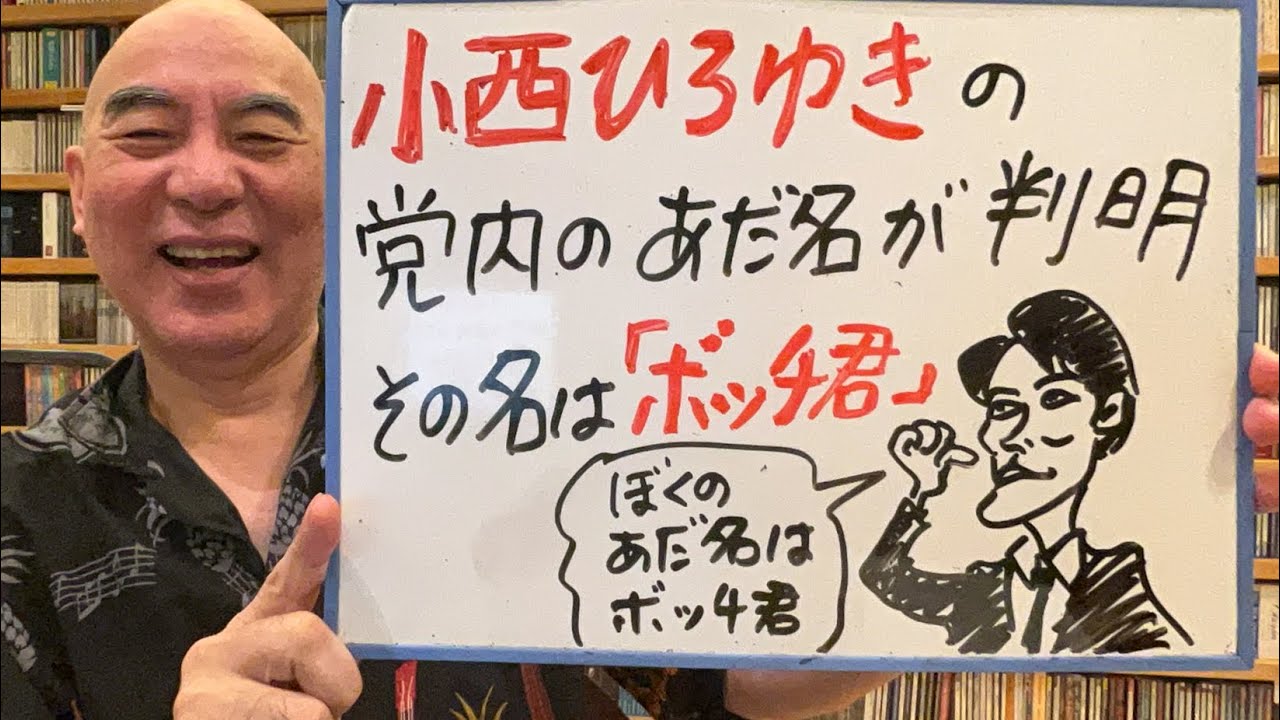 小西ひろゆきの
党内のあだ名が判明
その名は「ボッチ君」
ぼくの
あだ名は
ボッチ君